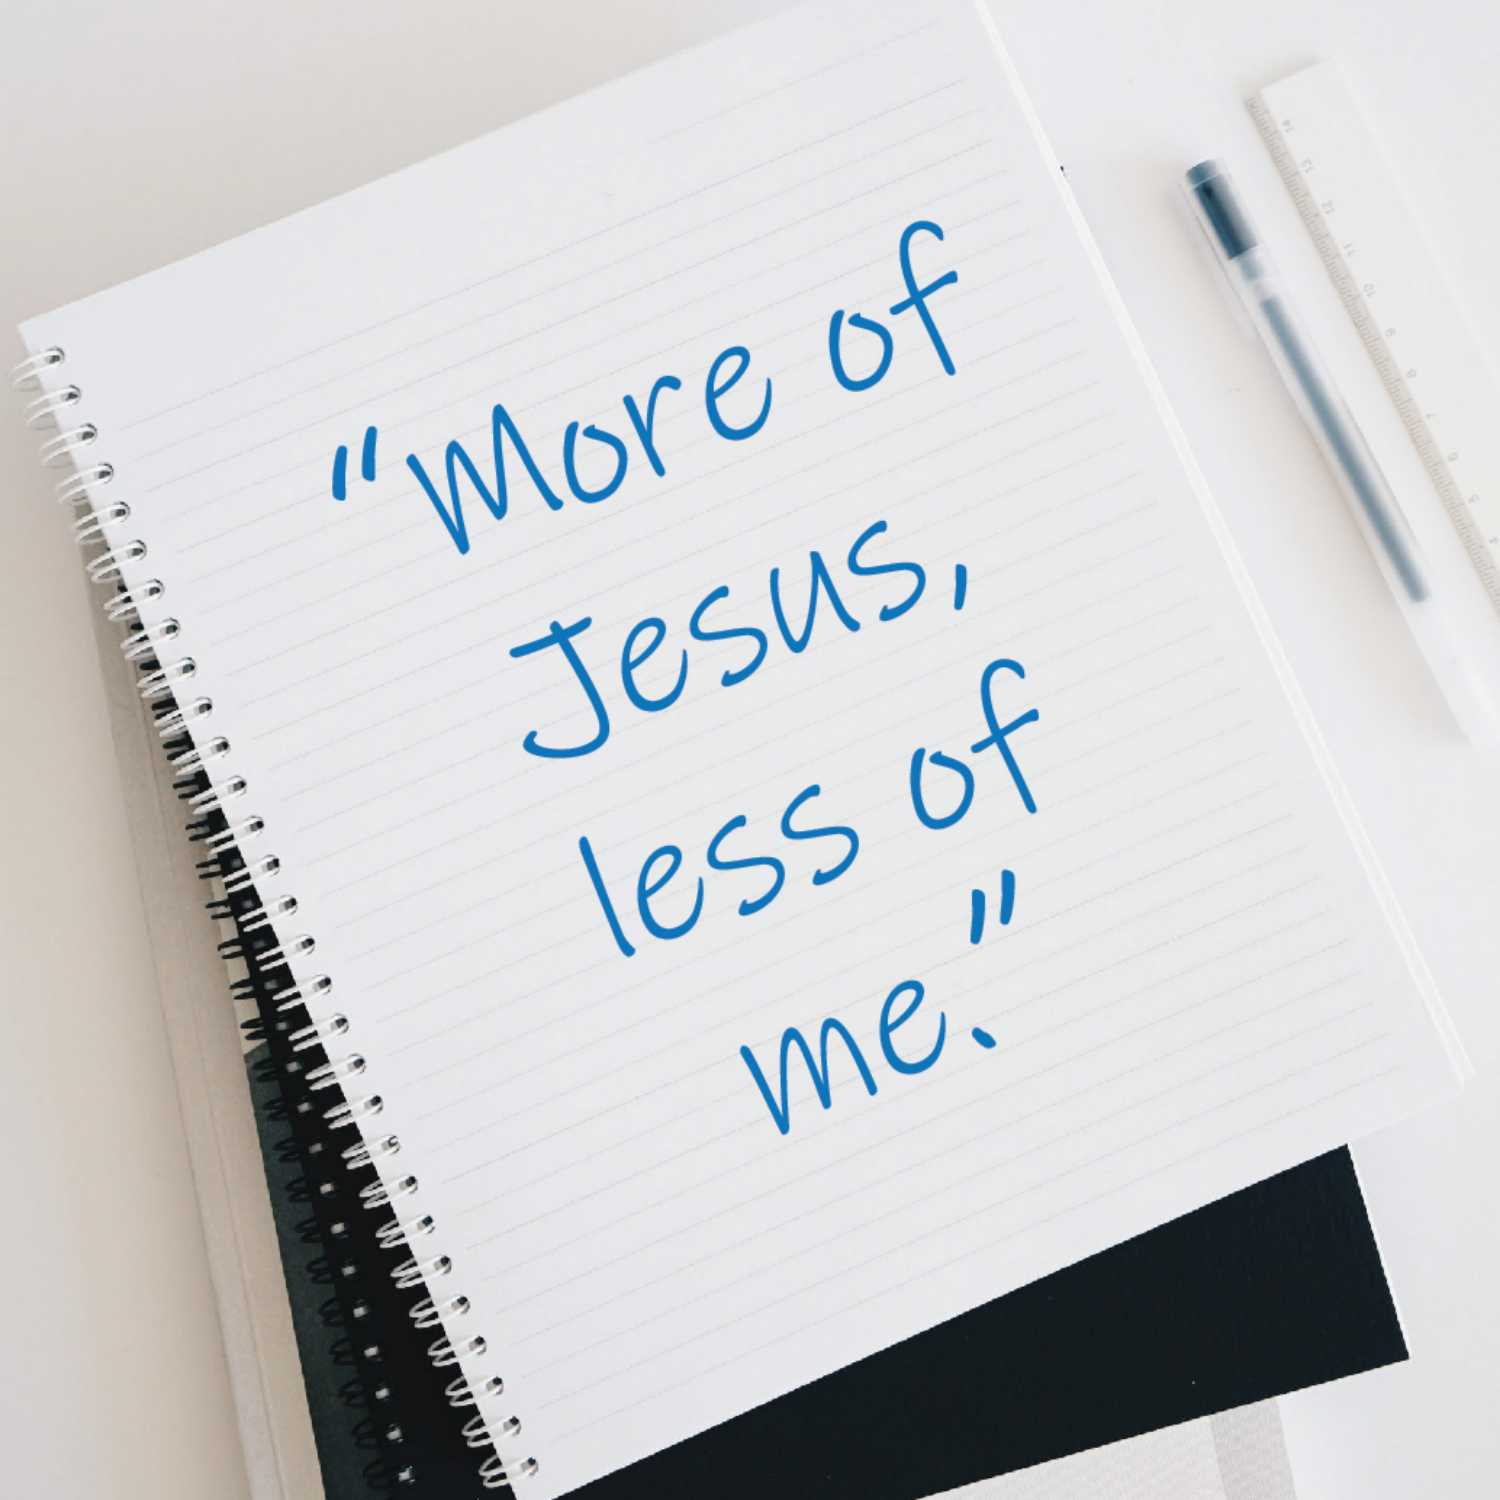 “More of
Jesus,
less of
me.”